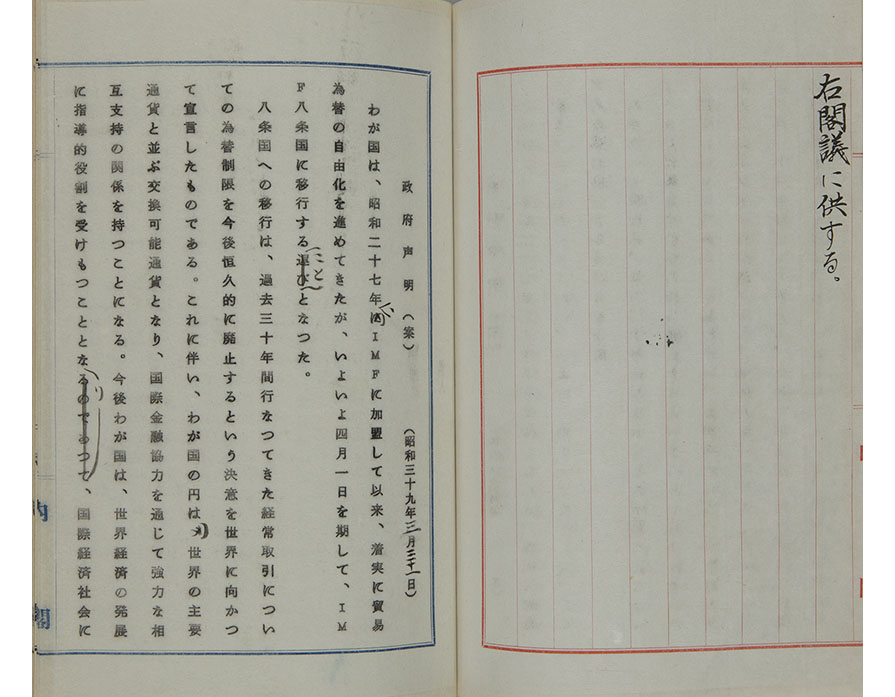 右閣議に供する。
政府声明(案)
(昭和三十九年三月三十一日)
わが国は、昭和二十七年IMFに加盟して以来、着実に貿易
為替の自由化を進めてきたが、いよいよ四月一日を期して、IM
F八条国に移行する運びとなつた。
(こと)
八条国への移行は、過去三十年間行なつてきた経常取引につい
ての為替制限を今後恒久的に廃止するという決意を世界に向かつ
て宣言したものである。これに伴い、わが国の円は、世界の主要
通貨と並ぶ交換可能通貨となり、国際金融協力を通じて強力な相
互支持の関係を持つことになる。今後わが国は、世界経済の発展
に指導的役割を受けもつこととなるのであつて、国際経済社会に
り
内閣